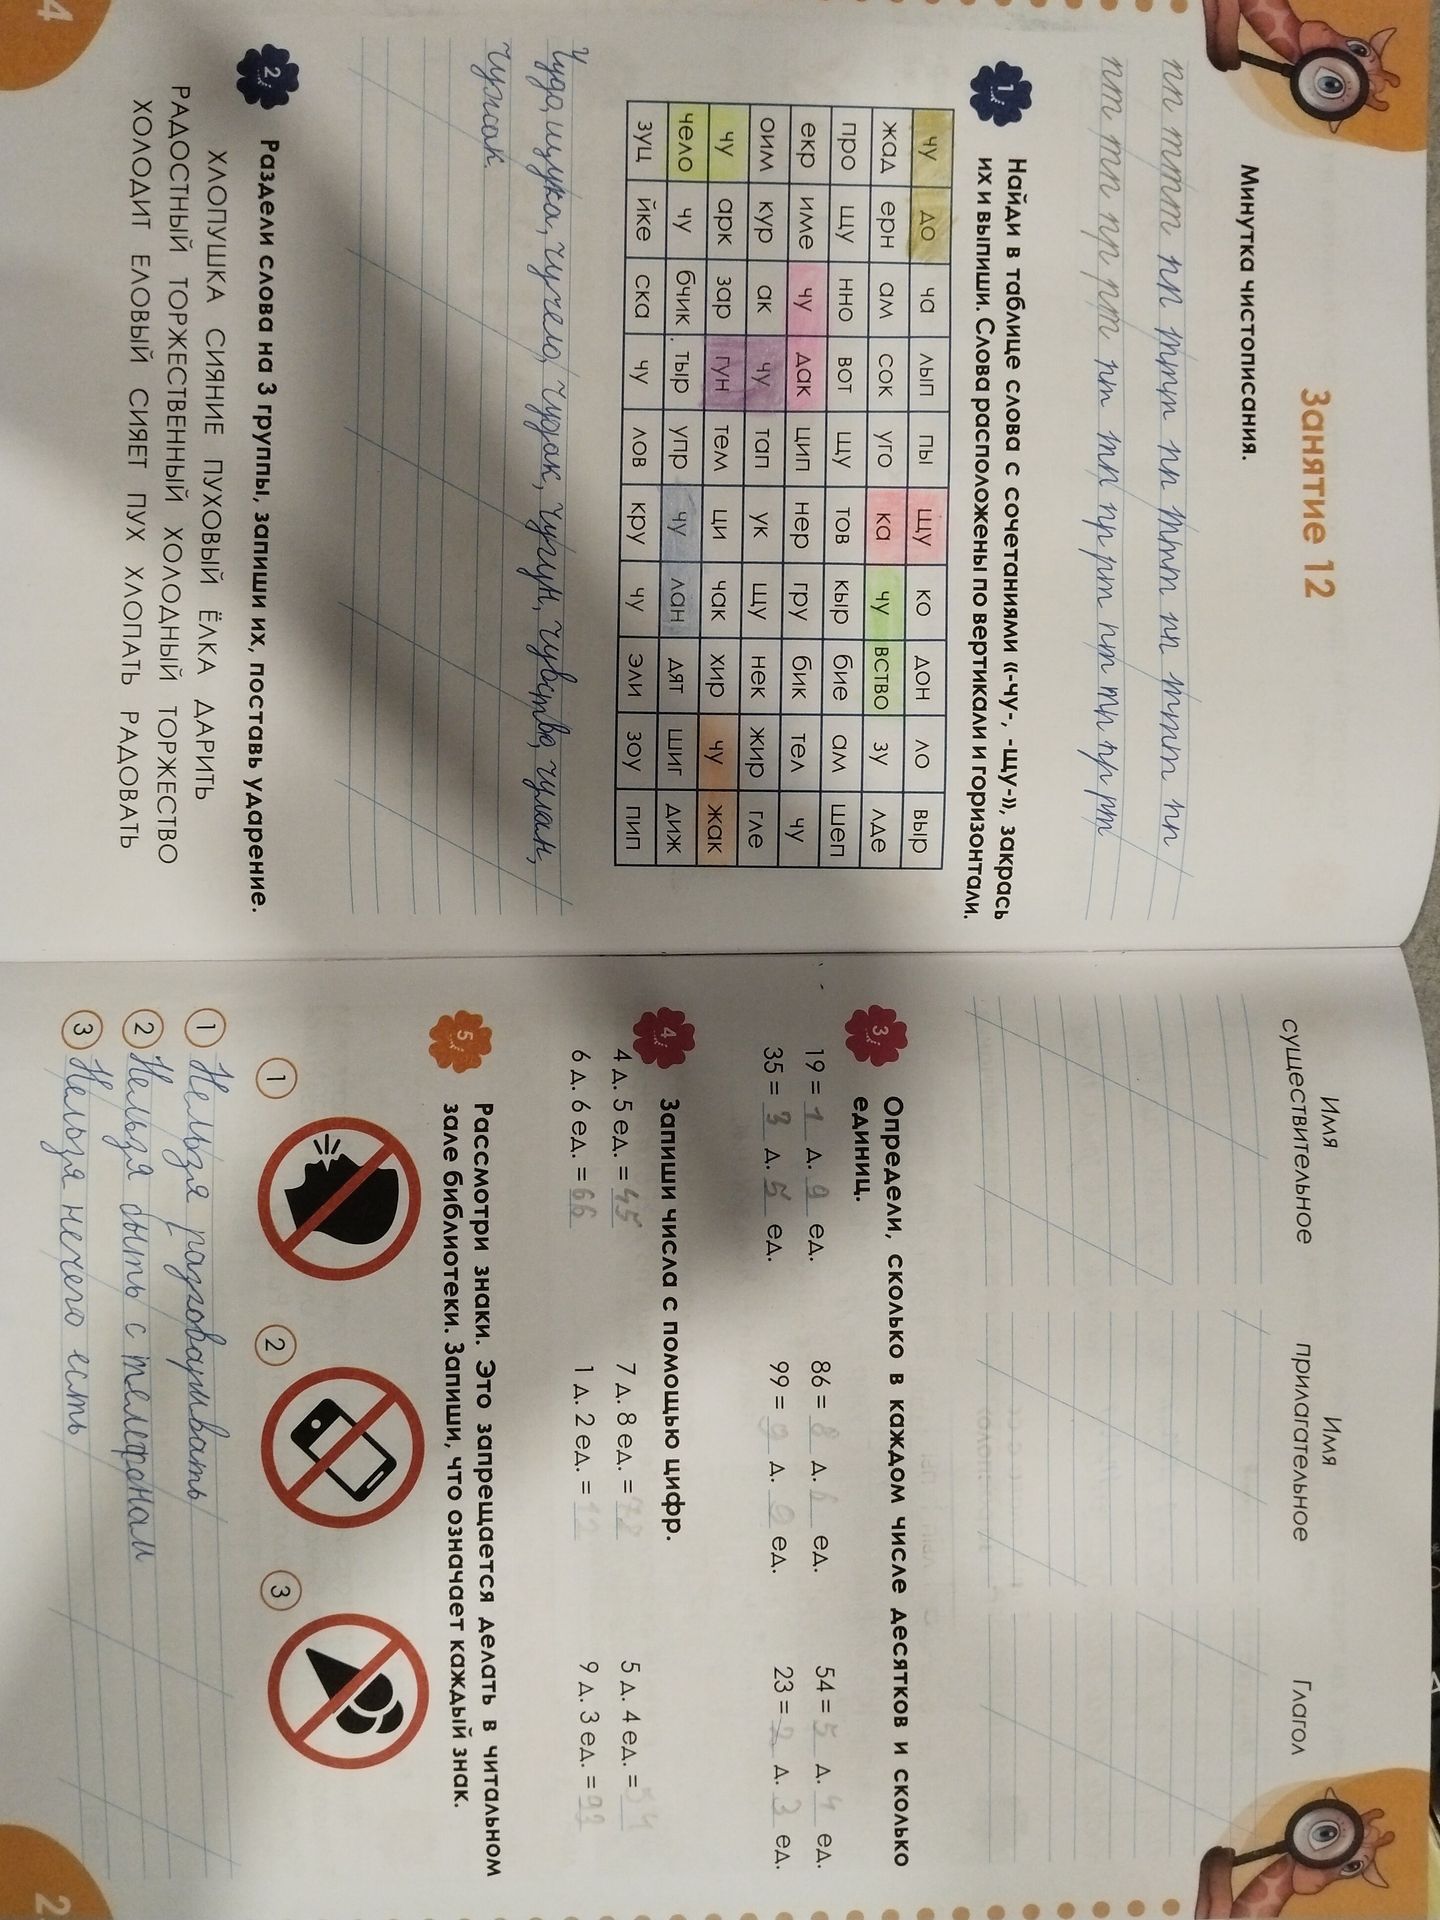 Занятие 12
Минутка чистописания.
1
Найди в таблице слова с сочетаниями «-чу-, -щу-», закрась
их и выпиши. Слова расположены по вертикали и горизонтали.
чу до ча лып пы щу ко дон ло выр
жад ерн ам сок уго ка чу вство зу лде
про щу нно вот щу тов кыр бие ам шеп
екр име чу дак цип нер гру бик тел чу
оим кур ак чу тап ук щу нек жир гле
чу арк зар гун тем ци чак хир чу жак
чело чу бчик тыр упр чу лан дят шиг диж
зуц йке ска чу лов кру чу эли зоу пип
Чудо, щука, чучело, чудак, чугун, чувство, чулан,
чужак.
2
Раздели слова на 3 группы, запиши их, поставь ударение.
ХЛОПУШКА СИЯНИЕ ПУХОВЫЙ ЁЛКА ДАРИТЬ
РАДОСТНЫЙ ТОРЖЕСТВЕННЫЙ ХОЛОДНЫЙ ТОРЖЕСТВО
ХОЛОДИТ ЕЛОВЫЙ СИЯЕТ ПУХ ХЛОПАТЬ РАДОВАТЬ
4
Имя Имя Глагол
существительное прилагательное
3
Определи, сколько в каждом числе десятков и сколько
единиц.
19 = 1 д. 9 ед. 86 = 8 д. 6 ед. 54 = 5 д. 4 ед.
35 = 3 д. 5 ед. 99 = 9 д. 9 ед. 23 = 2 д. 3 ед.
4
Запиши числа с помощью цифр.
4 д. 5 ед. = 45 7 д. 8 ед. = 78 5 д. 4 ед. = 54
6 д. 6 ед. = 66 1 д. 2 ед. = 12 9 д. 3 ед. = 93
5
Рассмотри знаки. Это запрещается делать в читальном
зале библиотеки. Запиши, что означает каждый знак.
1 2 3
1 Нельзя разговаривать
2 Нельзя быть с телефонам
3 Нельзя нечего есть
2